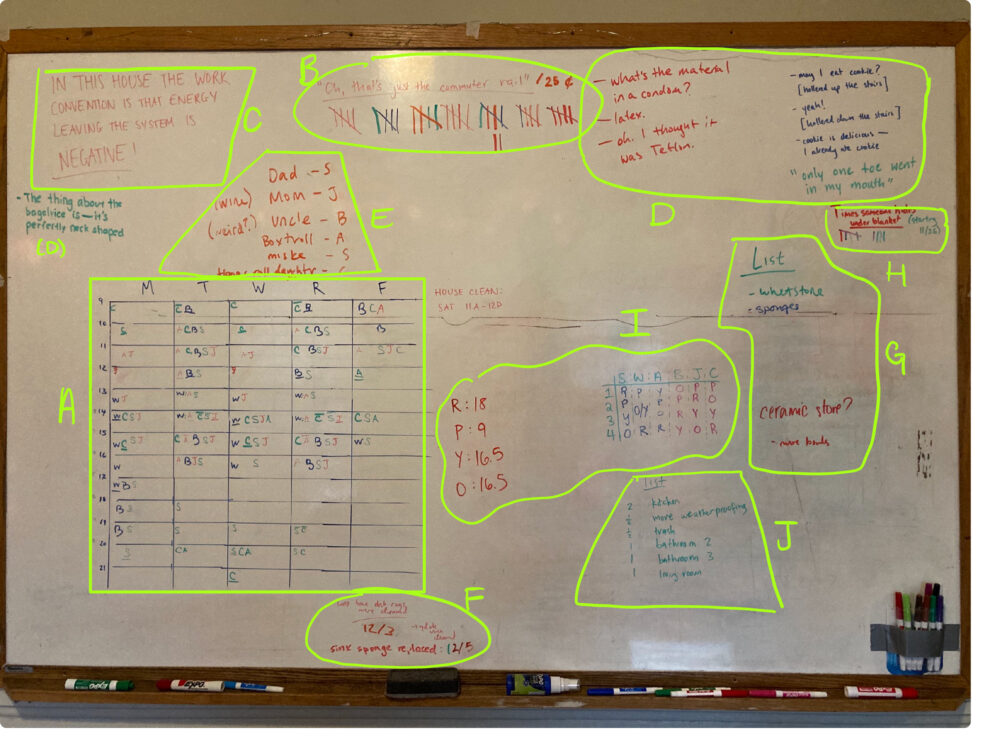 IN THIS HOUSE THE WORK
CONVENTION IS THAT ENERGY
LEAVING THE SYSTEM IS
NEGATIVE!
C
B
"Oh, that's just the commuter rail" /25 ¢
- what's the material
in a condom?
- later.
- oh. I thought it
was Teflon.
- may I eat cookie?
[hollered up the stairs]
- yeah!
[hollered down the stairs]
- cookie is delicious —
I already ate cookie
"only one toe went
in my mouth"
D
- The thing about the
is—it's
perfectly neck shaped
(D)
Dad - S
(wine) Mom - J
(weird?) Uncle - B
Boxtroll - A
- S
E
Times someone
under blanket (starting
11/25)
H
List
- whetstone
- sponges
ceramic store?
- more bowls
G
HOUSE CLEAN:
SAT 11A-12P
A
M T W R F
9 C CB C CB BCA
10 S ACBS S ACBS B
11 AJ ACBSJ AJ C BSJ A SJC
12 ABS BS A
13 WJ WAS WJ WAS
14 WCSJ WA CSJ WCSJA WA CSJ CSA
15 WCSJ CABSJ WCSJ CABSJ WS
16 W ABJS W S ABSJ
17 WBS
18 BS S
19 BS S S SC
20 S CA SCA SC
21 C
I
R: 18
P: 9
Y: 16.5
O: 16.5
S W A B J C
1 R P Y O P P
2 P P P P R O
3 Y O/Y O R Y Y
4 O R R Y O R
list
2 kitchen
½ more weatherproofing
½ trash
1 bathroom 2
1 bathroom 3
1 living room
J
F
dish rags
were changed
12/3
sink sponge replaced: 12/5
EXPO
EXPO